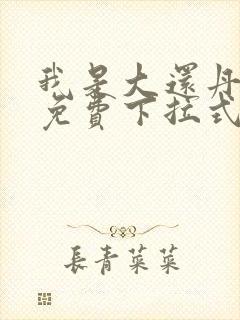 我是大還丹
免費下拉式
長青菜菜